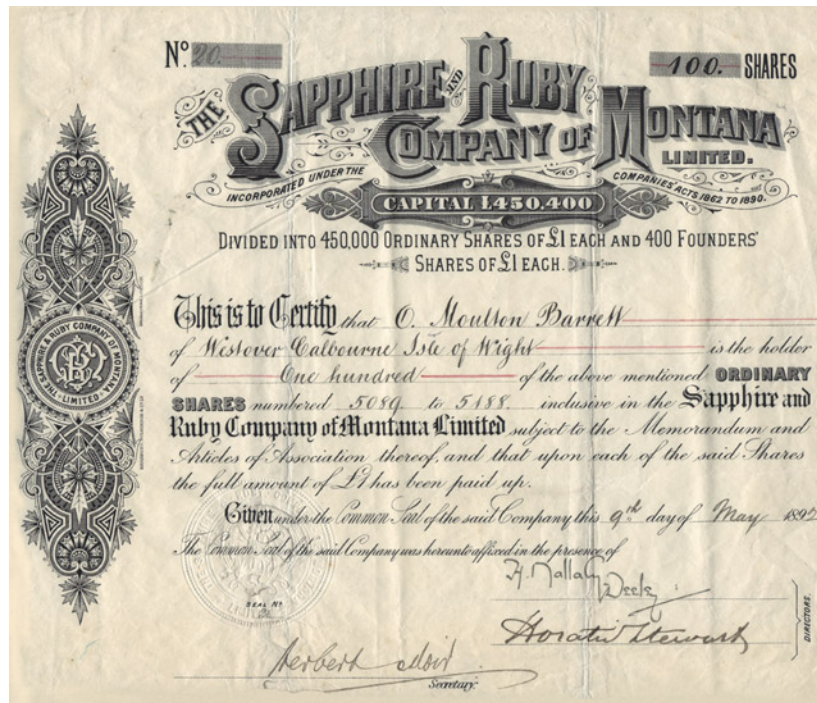 Nº 20.
100. SHARES
THE SAPPHIRE AND RUBY
COMPANY OF MONTANA
LIMITED.
INCORPORATED UNDER THE COMPANIES ACTS 1862 TO 1890.
CAPITAL £450,400
DIVIDED INTO 450,000 ORDINARY SHARES OF £1 EACH AND 400 FOUNDERS'
SHARES OF £1 EACH.
This is to Certify that O. Moulton Barrett
of Westover Calbourne Isle of Wight is the holder
of One hundred of the above mentioned ORDINARY
SHARES numbered 5089 to 5188 inclusive in the Sapphire and
Ruby Company of Montana Limited subject to the Memorandum and
Articles of Association thereof, and that upon each of the said Shares
the full amount of £1 has been paid up.
Given under the Common Seal of the said Company this 9th day of May 1892
The Common Seal of the said Company was hereunto affixed in the presence of
Horatio Stewart
DIRECTORS.
Herbert
Secretary.
SEAL Nº
THE SAPPHIRE & RUBY COMPANY OF MONTANA
LIMITED